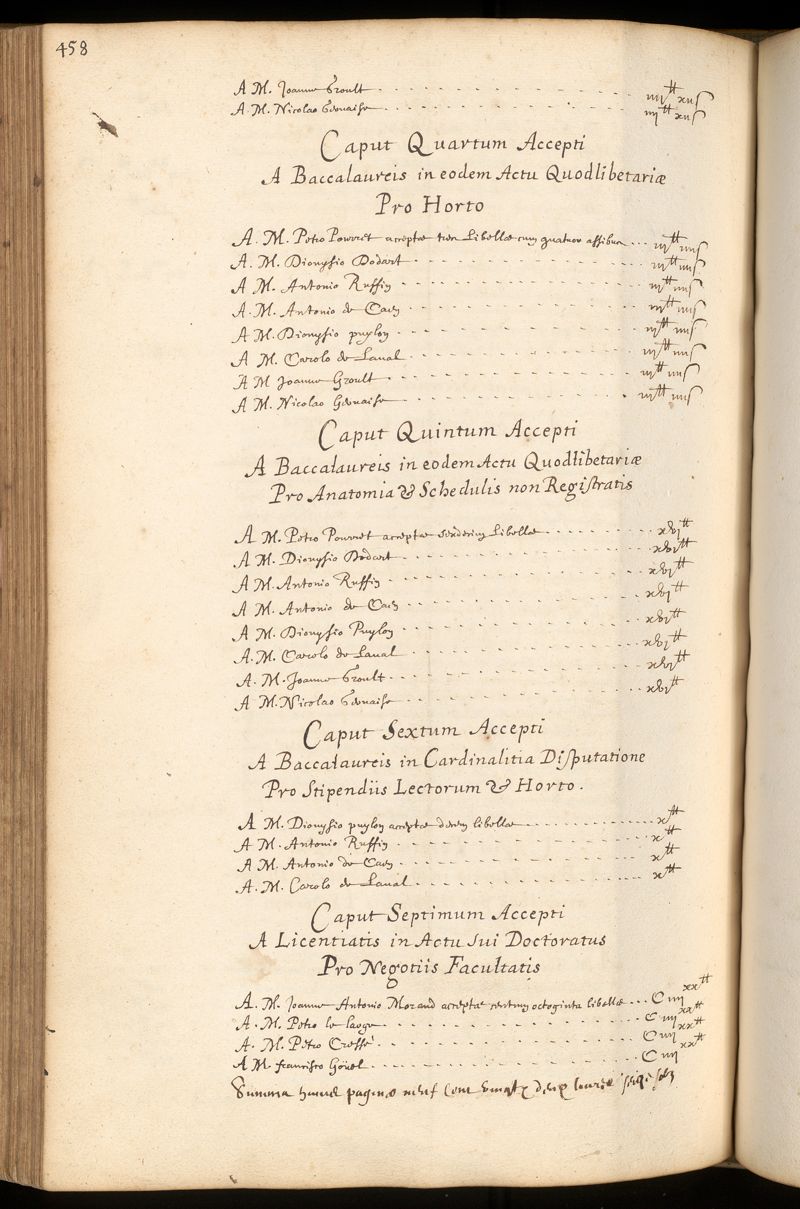 458
A M. Joanne Groult - - - - - - - - - - iiij^tt xijs
A. M. Nicolao Gervaise - - - - - - - - - - iiij^tt xijs
Caput Quartum Accepti
A Baccalaureis in eodem Actu Quodlibetariæ
Pro Horto
A. M. Petro Pourret acceptæ tres Libellæ cum quatuor assibus - - - iij^tt iiijs
A. M. Dionysio Dodart - - - - - - - - - - iij^tt iiijs
A M. Antonio Ruffin - - - - - - - - - - iij^tt iiijs
A. M. Antonio de Caen - - - - - - - - - - iij^tt iiijs
A M. Dionysio puylon - - - - - - - - - - iij^tt iiijs
A M. Carolo de Laual - - - - - - - - - - iij^tt iiijs
A M Joanne Groult - - - - - - - - - - iij^tt iiijs
A M. Nicolao Gervaise - - - - - - - - - - iij^tt iiijs
Caput Quintum Accepti
A Baccalaureis in eodem Actu Quodlibetariæ
Pro Anatomia & Schedulis non Registratis
A M. Petro Pourret acceptæ sexdecim Libellæ - - - - - - - xvj^tt
A M. Dionysio Dodart - - - - - - - - - - xvj^tt
A M. Antonio Ruffin - - - - - - - - - - xvj^tt
A M. Antonio de Caen - - - - - - - - - - xvj^tt
A M. Dionysio Puylon - - - - - - - - - - xvj^tt
A. M. Carolo de Laual - - - - - - - - - - xvj^tt
A M. Joanne Groult - - - - - - - - - - xvj^tt
A M. Nicolao Gervaise - - - - - - - - - - xvj^tt
Caput Sextum Accepti
A Baccalaureis in Cardinalitia Disputatione
Pro Stipendiis Lectorum & Horto.
A M. Dionysio puylon acceptæ decem libellæ - - - - - - - x^tt
A M. Antonio Ruffin - - - - - - - - - - x^tt
A M. Antonio de Caen - - - - - - - - - - x^tt
A. M. Carolo de Laual - - - - - - - - - - x^tt
Caput Septimum Accepti
A Licentiatis in Actu sui Doctoratus
Pro Negotiis Facultatis
A. M. Joanne Antonio Morand acceptæ centum octoginta libellæ - - - C iiij^xx tt
A. M. Petro le - - - - - - - - - - C iiij^xx tt
A. M. Petro Cressé - - - - - - - - - - C iiij^xx tt
A M. francisco Goüel - - - - - - - - - - C iiij^xx tt
Summa huius paginæ neuf Cent vingt deux liures